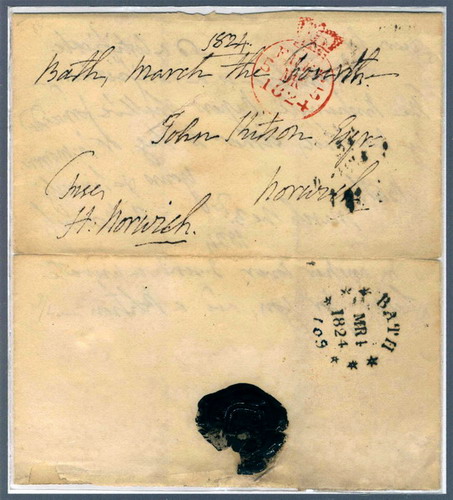 1824.
Bath, March the fourth
John Kitson Esqre
Norwich
Free
H. Norwich.
FREE
1824
BATH
MR 4
1824
109